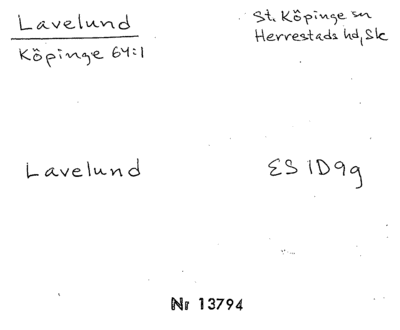 Lavelund
Köpinge 64:1
St. Köpinge sn
Herrestads hd, Sk
Lavelund
ES 1D9g
Nr 13794